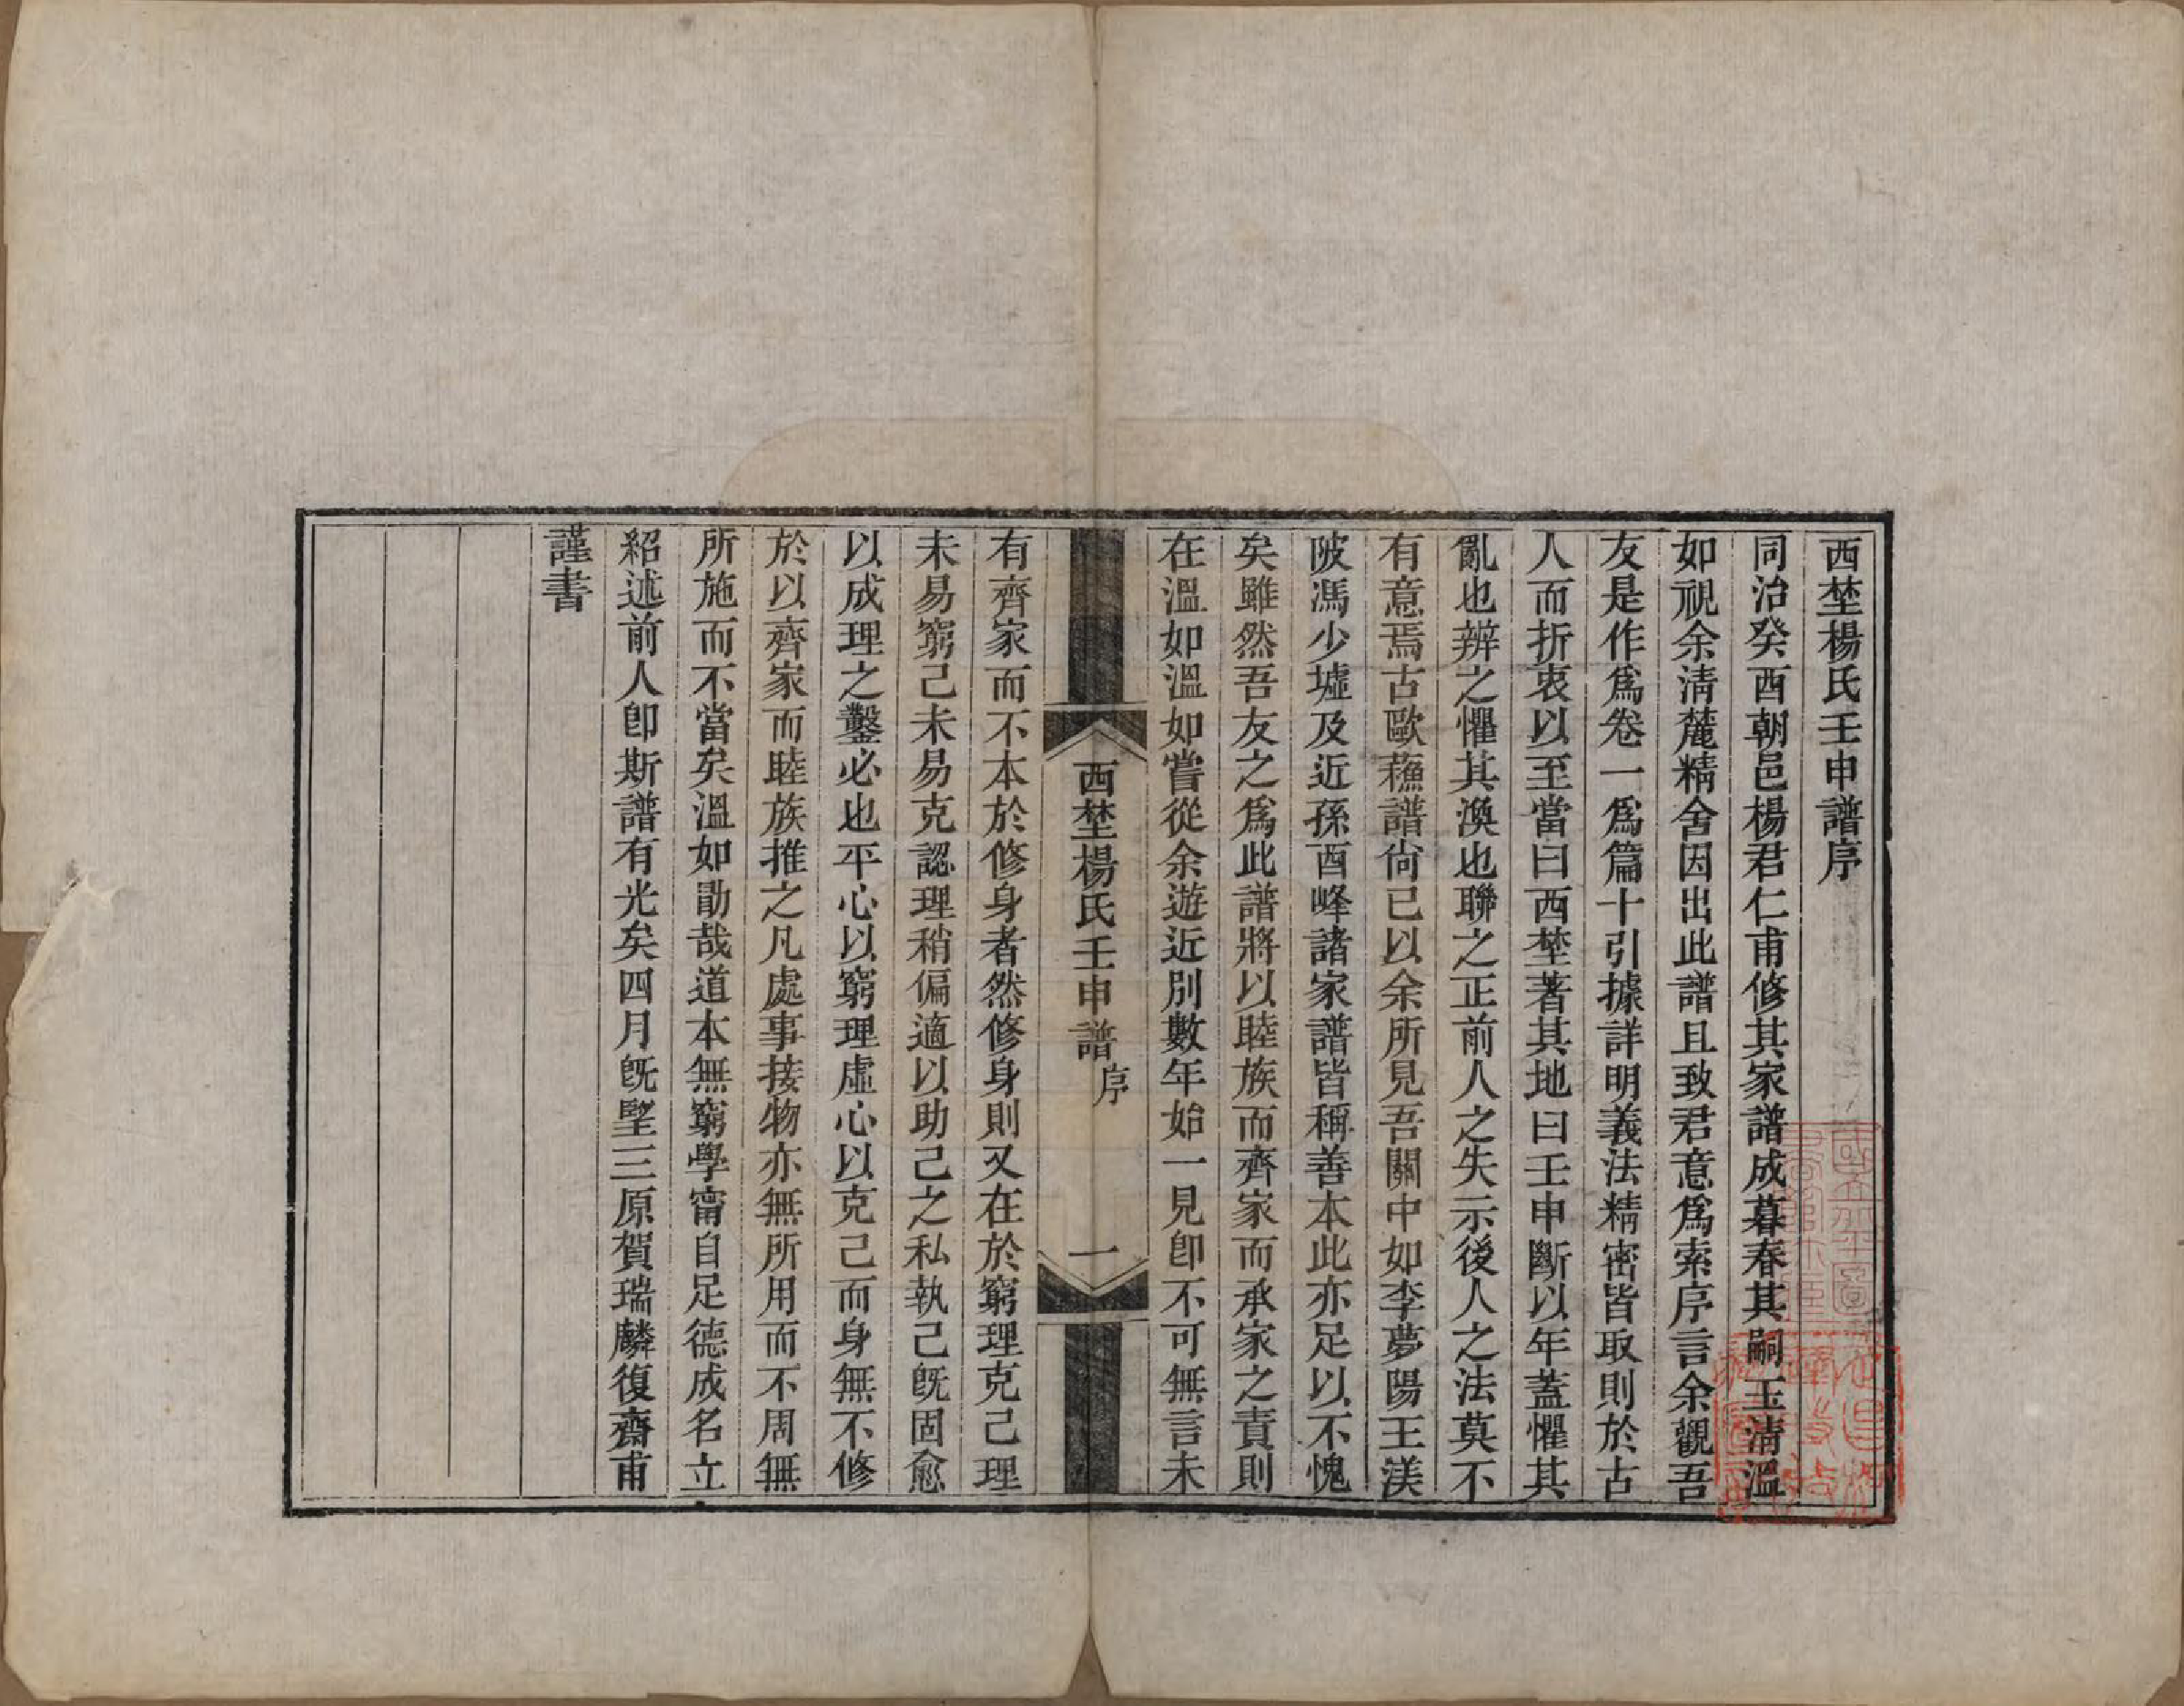 西埜楊氏壬申譜序
同治癸酉朝邑楊君仁甫修其家譜成暮春其嗣玉清溫
如視余清麓精舍因出此譜且致君意爲索序言余觀吾
友是作爲卷一爲篇十引據詳明義法精密皆取則於古
人而折衷以至當曰西埜著其地曰壬申斷以年蓋懼其
亂也辨之懼其渙也聯之正前人之失示後人之法莫不
有意焉古歐蘓譜尙已以余所見吾關中如李夢陽王渼
陂馮少墟及近孫酉峰諸家譜皆稱善本此亦足以不愧
矣雖然吾友之爲此譜將以睦族而齊家而承家之責則
在溫如溫如嘗從余遊近別數年始一見卽不可無言未
西埜楊氏壬申譜 序
一
有齊家而不本於修身者然修身則又在於窮理克己理
未易窮己未易克認理稍偏適以助己之私執己旣固愈
以成理之鑿必也平心以窮理虛心以克己而身無不修
於以齊家而睦族推之凡處事接物亦無所用而不周無
所施而不當矣溫如勗哉道本無窮學甯自足德成名立
紹述前人卽斯譜有光矣四月旣朢三原賀瑞麟復齋甫
謹書